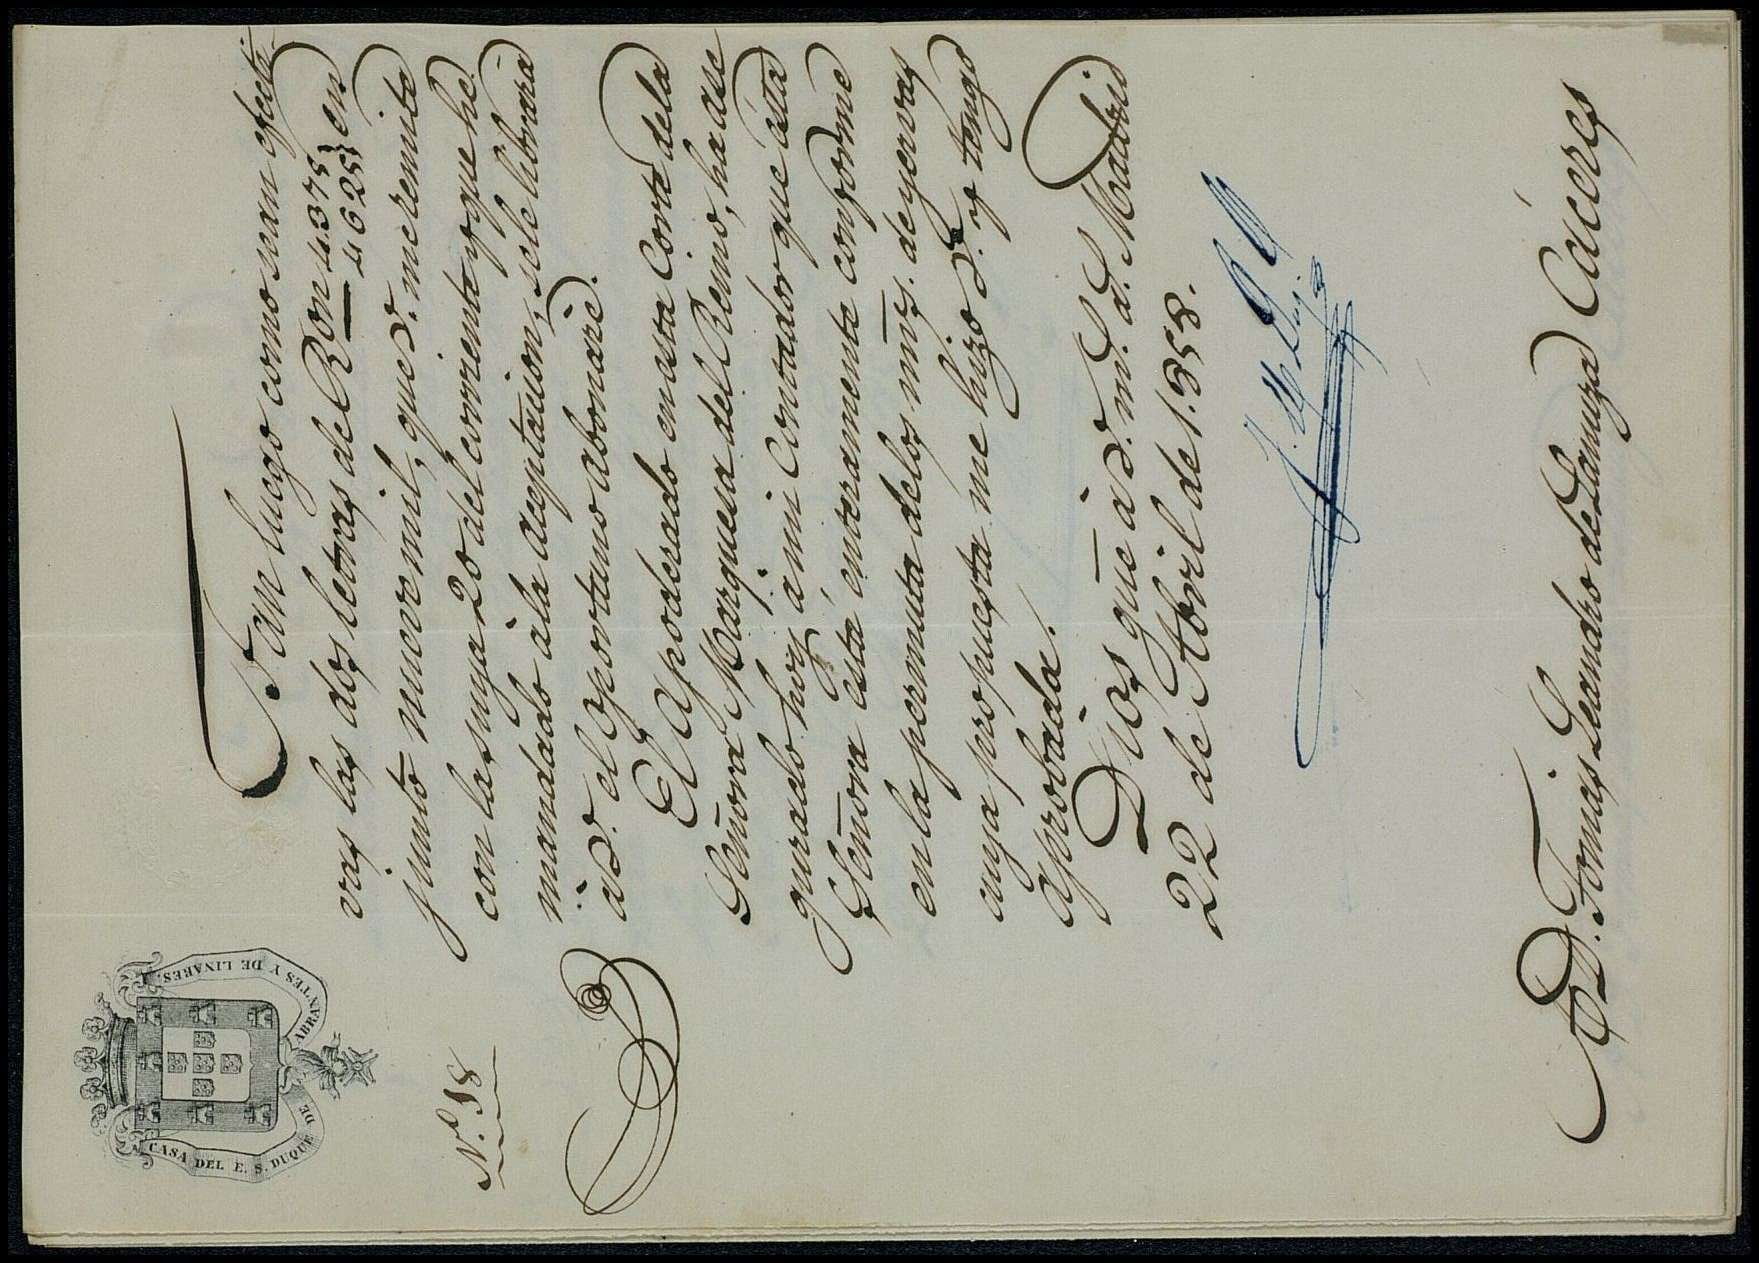 CASA DEL E. S. DUQUE DE ABRANTES Y DE LINARES.
N.º 38
Tan luego como sean efecti-
vas las dos letras de Rvon 4.375} en
4.625}
junto nueve mil, que V. me remite
con la suya 20 del corriente y que he
mandado à la aceptacion, se le librará
à V. el oportuno abonaré.
El Apoderado en esta Corte de la
Señora Marquesa del Reino, ha ase
gurado hoy à mi Contador que ésta
Señora está enteramente conforme
en la permuta de los mrs. de yervas
cuya propuesta me hizo V. y tengo
aprobada.
Dios gue à V. m. a. Madrid
22 de Abril de 1.858.
S. D. Tomás Leandro de Lanuza Cáceres